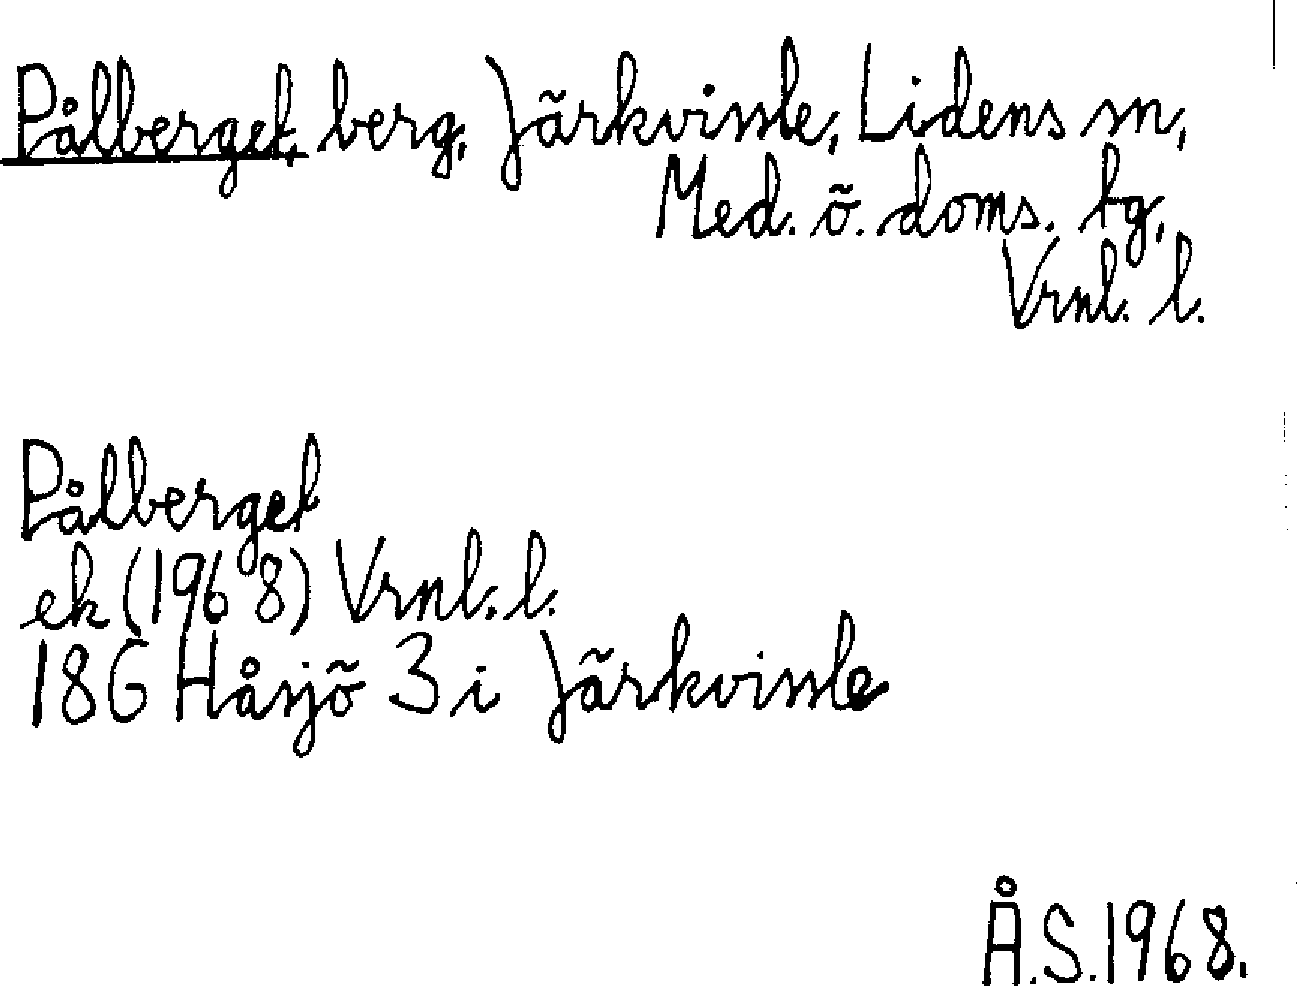 Pålberget, berg, Järkvissle, Lidens sn,
Med. ö. doms. tg,
Vrnl. l.
Pålberget
ek (1968) Vrnl. l.
18G Håsjö 3 i Järkvissle
Å.S.1968.